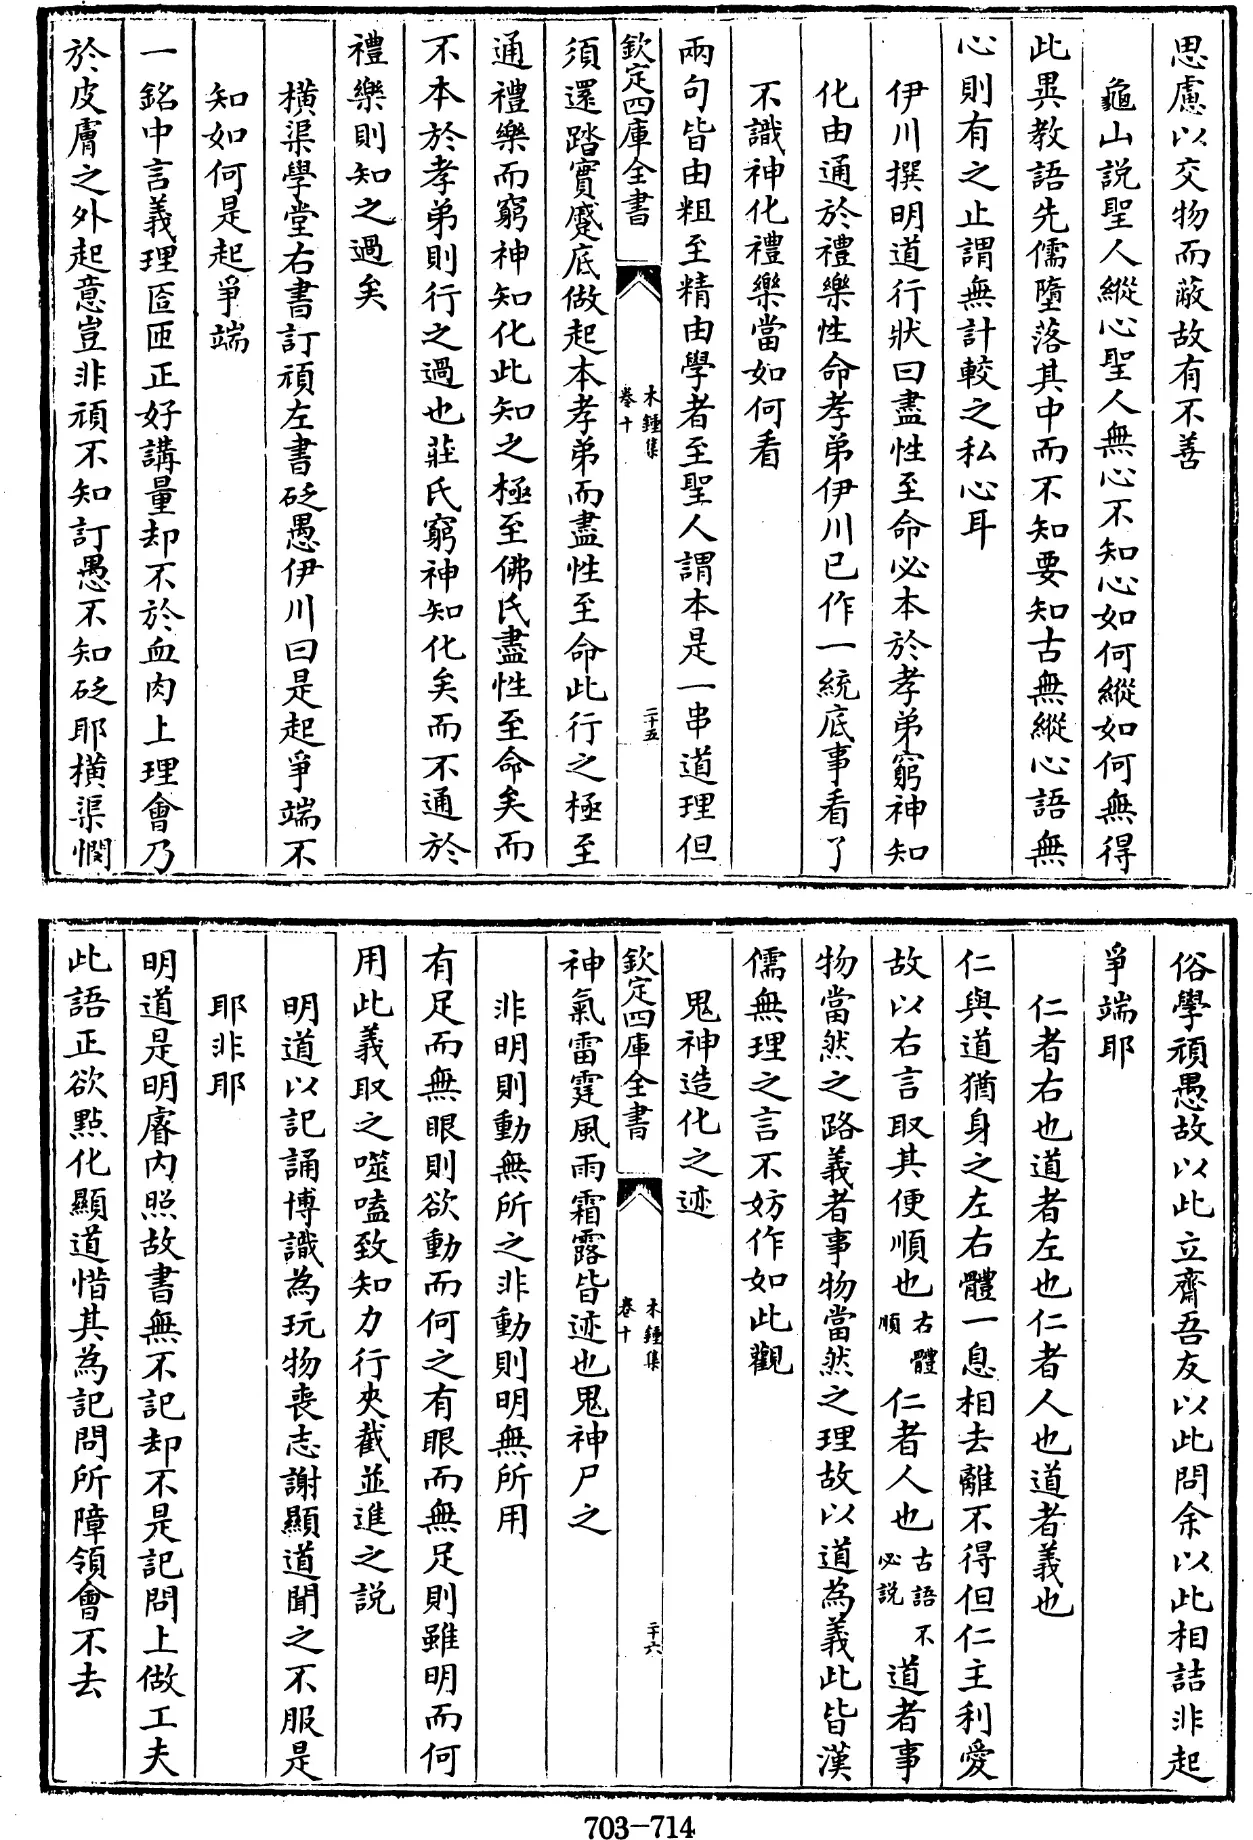 思慮以交物而蔽故有不善
龜山説聖人縱心聖人無心不知心如何縱如何無得
此異教語先儒墮落其中而不知要知古無縱心語無
心則有之止謂無計較之私心耳
伊川撰明道行狀曰盡性至命必本於孝弟窮神知
化由通於禮樂性命孝弟伊川已作一統底事看了
不識神化禮樂當如何看
兩句皆由粗至精由學者至聖人謂本是一串道理但
欽定四庫全書
木鍾集
卷十
二十五
須還踏實蹙底做起本孝弟而盡性至命此行之極至
通禮樂而窮神知化此知之極至佛氏盡性至命矣而
不本於孝弟則行之過也莊氏窮神知化矣而不通於
禮樂則知之過矣
橫渠學堂右書訂頑左書砭愚伊川曰是起爭端不
知如何是起爭端
一銘中言義理匼匝正好講量却不於血肉上理會乃
於皮膚之外起意豈非頑不知訂愚不知砭耶橫渠憫
俗學頑愚故以此立齋吾友以此問余以此相詰非起
爭端耶
仁者右也道者左也仁者人也道者義也
仁與道猶身之左右體一息相去離不得但仁主利愛
故以右言取其便順也右體順仁者人也古語不必説道者事
物當然之路義者事物當然之理故以道為義此皆漢
儒無理之言不妨作如此觀
鬼神造化之迹
欽定四庫全書
木鍾集
卷十
二十六
神氣雷霆風雨霜露皆迹也鬼神尸之
非明則動無所之非動則明無所用
有足而無眼則欲動而何之有眼而無足則雖明而何
用此義取之噬嗑致知力行夾截並進之説
明道以記誦博識為玩物喪志謝顯道聞之不服是
耶非耶
明道是明睿内照故書無不記却不是記問上做工夫
此語正欲點化顯道惜其為記問所障領會不去
703-714